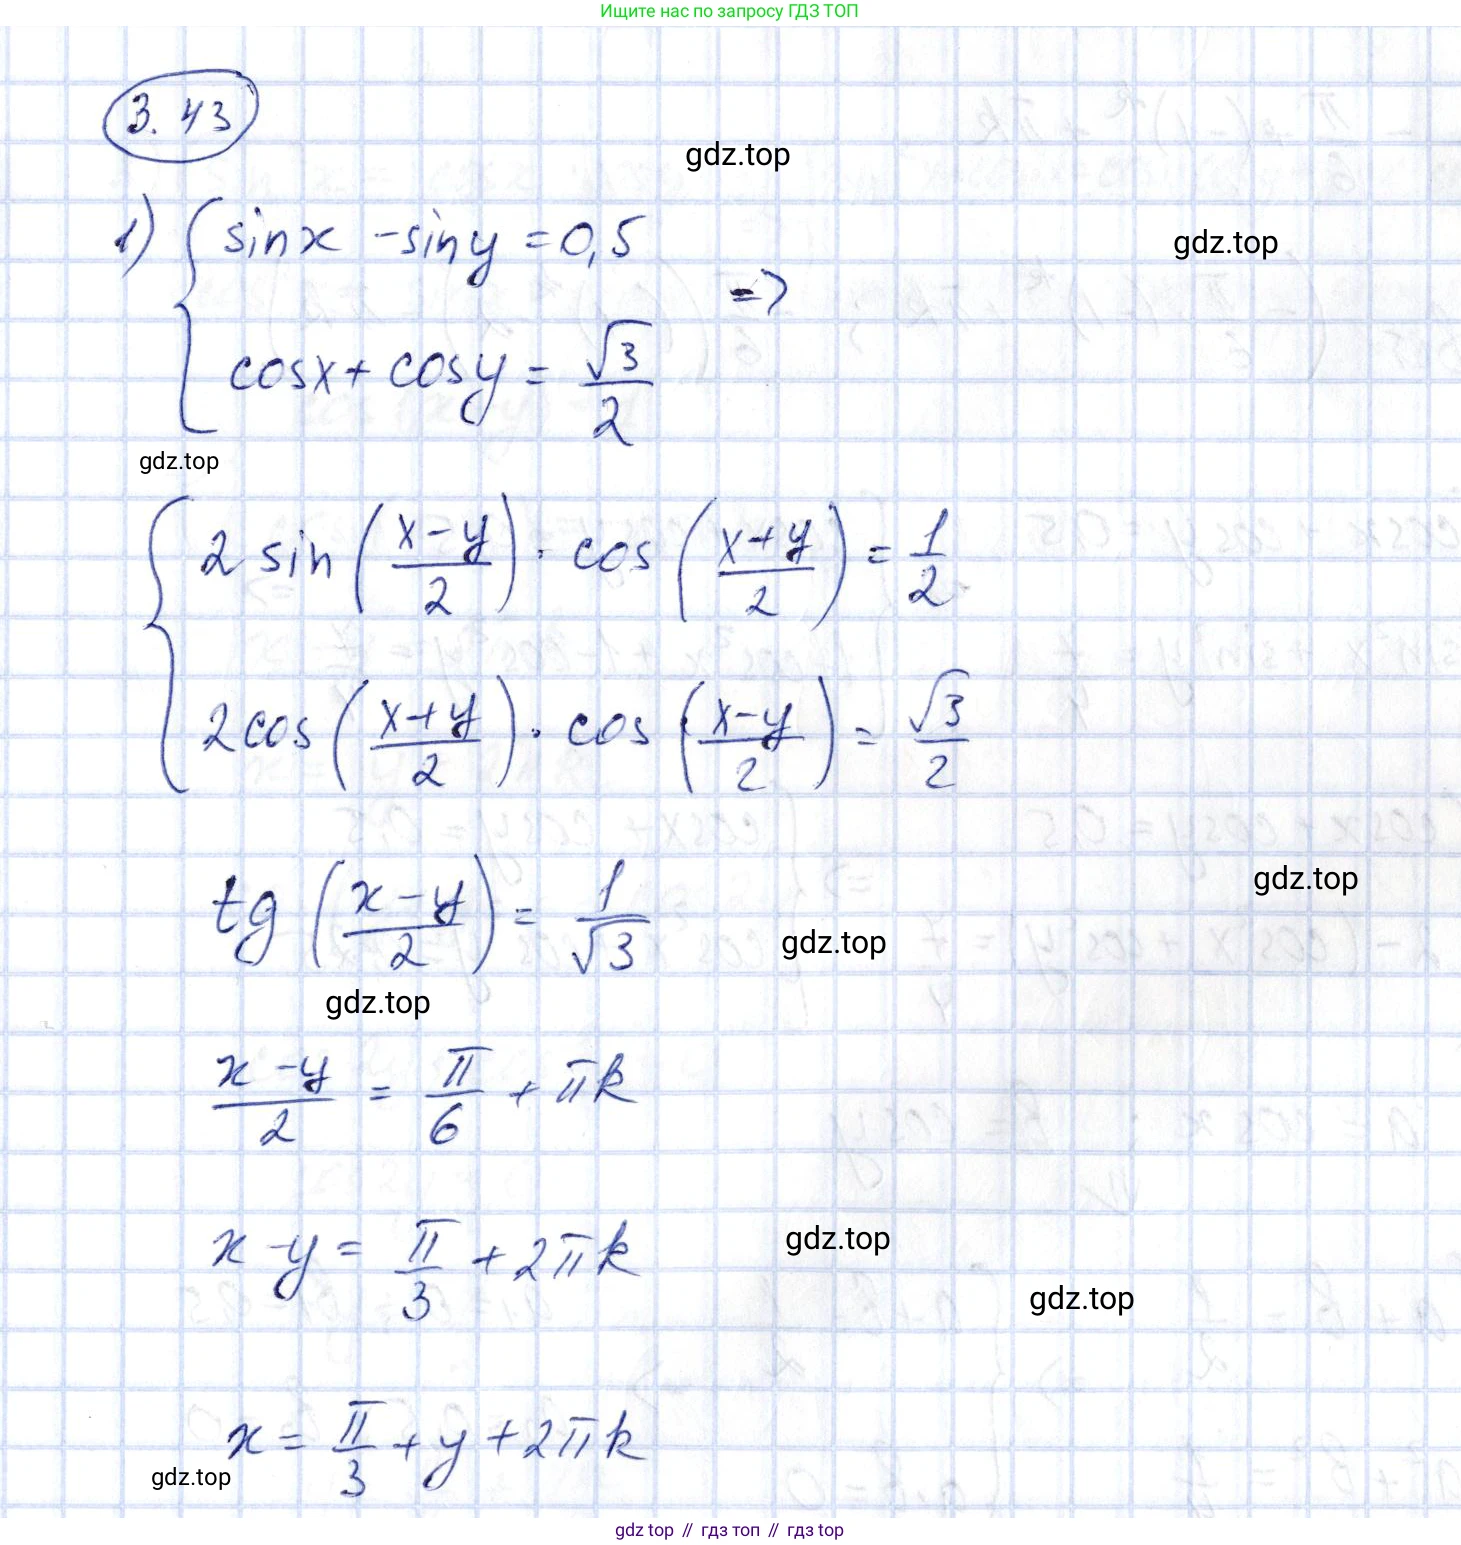 Ищите нас по запросу ГДЗ ТОП
3.43
gdz.top
1) { sinx - siny = 0,5
gdz.top
=>
cosx + cosy = √3/2
gdz.top
{ 2 sin((x-y)/2) · cos((x+y)/2) = 1/2
2cos((x+y)/2) · cos((x-y)/2) = √3/2
gdz.top
tg((x-y)/2) = 1/√3
gdz.top
gdz.top
(x-y)/2 = π/6 + πk
x-y = π/3 + 2πk
gdz.top
gdz.top
x = π/3 + y + 2πk
gdz.top
gdz top // гдз топ // гдз top